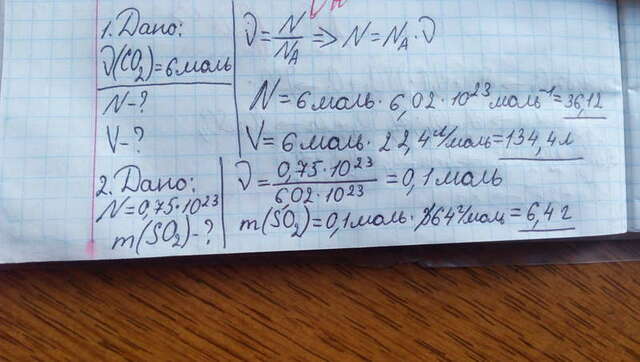 1. Дано:
ν(CO₂)=6моль
N-?
V-?
ν=N/N_A ⇒ N=N_A·ν
N=6моль·6,02·10²³моль⁻¹=36,12
V=6моль·22,4л/моль=134,4л
2. Дано:
N=0,75·10²³
m(SO₂)-?
ν=0,75·10²³/6,02·10²³=0,1моль
m(SO₂)=0,1моль·64г/моль=6,4г